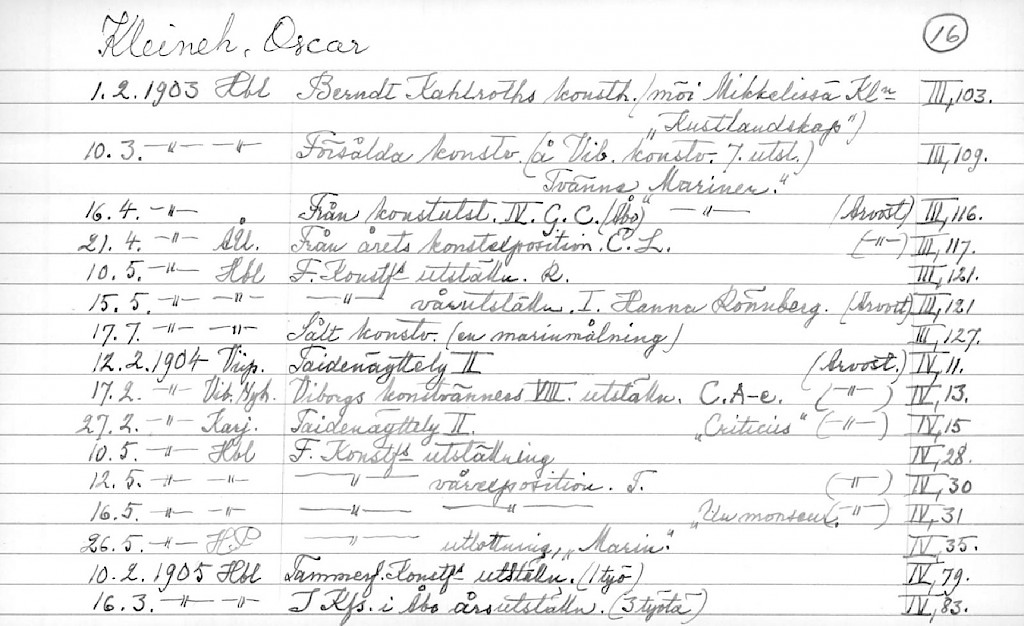 Kleineh, Oscar 16
1.2.1903 Hbl Berndt Kahlroths konsth. (möi Mikkelissä Kln III,103.
„Kustlandskap")
10.3.-"- -"- Försålda konstv. (å Vib. konstv. 7. utst.) III,109.
Tvänne Mariner."
16.4.-"- Från konstutst. IV. G.C. (Åbo) -"- (Arvost) III,116.
21.4.-"- ÅU. Från årets konstexposition. C.L. (-"-) III,117.
10.5.-"- Hbl F. Konstfs utställn. R. III,121.
15.5.-"- -"- -"- vårutställn. I. Hanna Rönnberg. (Arvost) III,121
17.7.-"- -"- Sålt konstv. (en marinmålning) III,127.
12.2.1904 Viip. Taidenäyttely II (Arvost.) IV,11.
17.2.-"- Vib. Nyh. Viborgs konstvänners VIII. utställn. C.A-e. (-"-) IV,13.
27.2.-"- Karj. Taidenäyttely II. „Criticus" (-"-) IV,15
10.5.-"- Hbl F. Konstfs utställning IV,28.
12.5.-"- -"- -"- vårexposition. T. (-"-) IV,30
16.5.-"- -"- -"- -"- „Un monsieur. (-"-) IV,31
26.5.-"- H.P -"- utlottning, „Marin." IV,35.
10.2.1905 Hbl Tammerf. Konstfs utställn. (1 työ) IV,79.
16.3.-"- -"- I Kfs. i Åbo årsutställn. (3 työtä) IV,83.